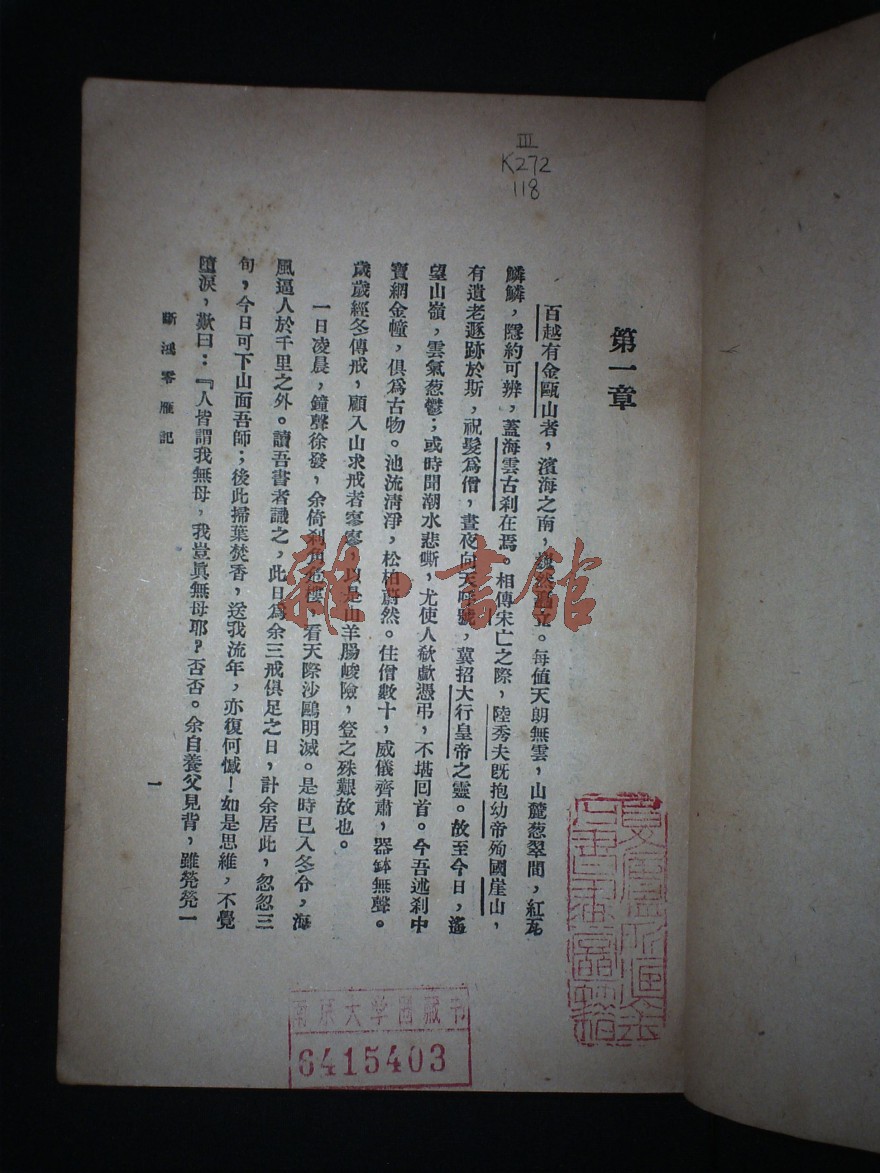 III
K272
118
第一章
百越有金甌山者，濱海之南，巍然矗立。每值天朗無雲，山麓葱翠間，紅瓦
鱗鱗，隱約可辨，蓋海雲古剎在焉。相傳宋亡之際，陸秀夫旣抱幼帝殉國崖山，
有遺老遯跡於斯，祝髮爲僧，晝夜向天呼號，冀招大行皇帝之靈。故至今日，遙
望山嶺，雲氣葱鬱；或時聞潮水悲嘶，尤使人欷歔憑弔，不堪回首。今吾述剎中
寶網金幢，俱爲古物。池流清淨，松柏蔚然。住僧數十，威儀齊肅，器鉢無聲。
歲歲經冬傳戒，顧入山求戒者寥寥，以是山羊腸峻險，登之殊艱故也。
一日凌晨，鐘聲徐發，余倚剎角危樓，看天際沙鷗明滅。是時已入冬令，海
風逼人於千里之外。讀吾書者識之，此日爲余三戒俱足之日，計余居此，忽忽三
旬，今日可下山面吾師；後此掃葉焚香，送我流年，亦復何憾！如是思維，不覺
墮淚，歎曰：『人皆謂我無母，我豈眞無母耶？否否。余自養父見背，雖煢煢一
斷鴻零雁記
一
雜·書館
南京大學圖藏书
6415403